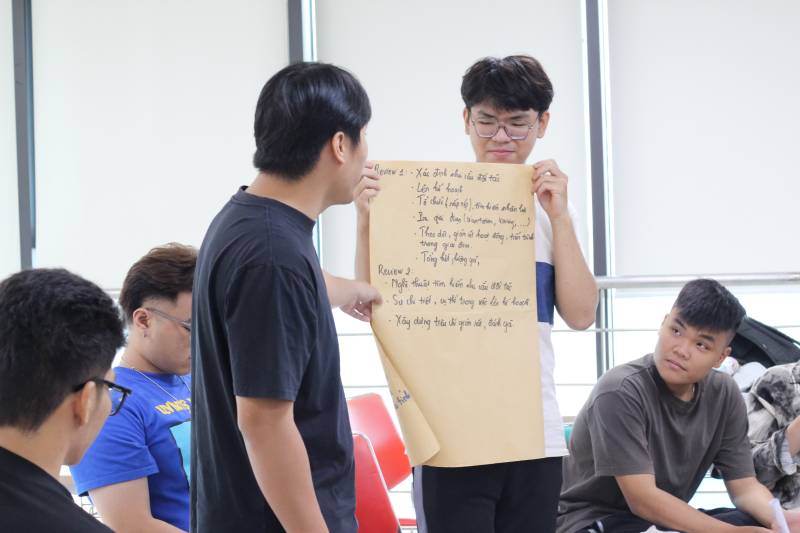 Review 1: - Xác định nhu cầu đối tác
- Lên kế hoạch
- Tổ chức (sắp xếp), tìm kiếm nhân lực
- Theo dõi, giám sát hoạt động, tiến trình
trong giai đoạn.
- Tổng kết, đánh giá,
REVIEW 2:
- Nghệ thuật tìm hiểu nhu cầu đối tác
- Sự chi tiết, cụ thể trong việc lên kế hoạch
- Xây dựng tiêu chí giám sát, đánh giá